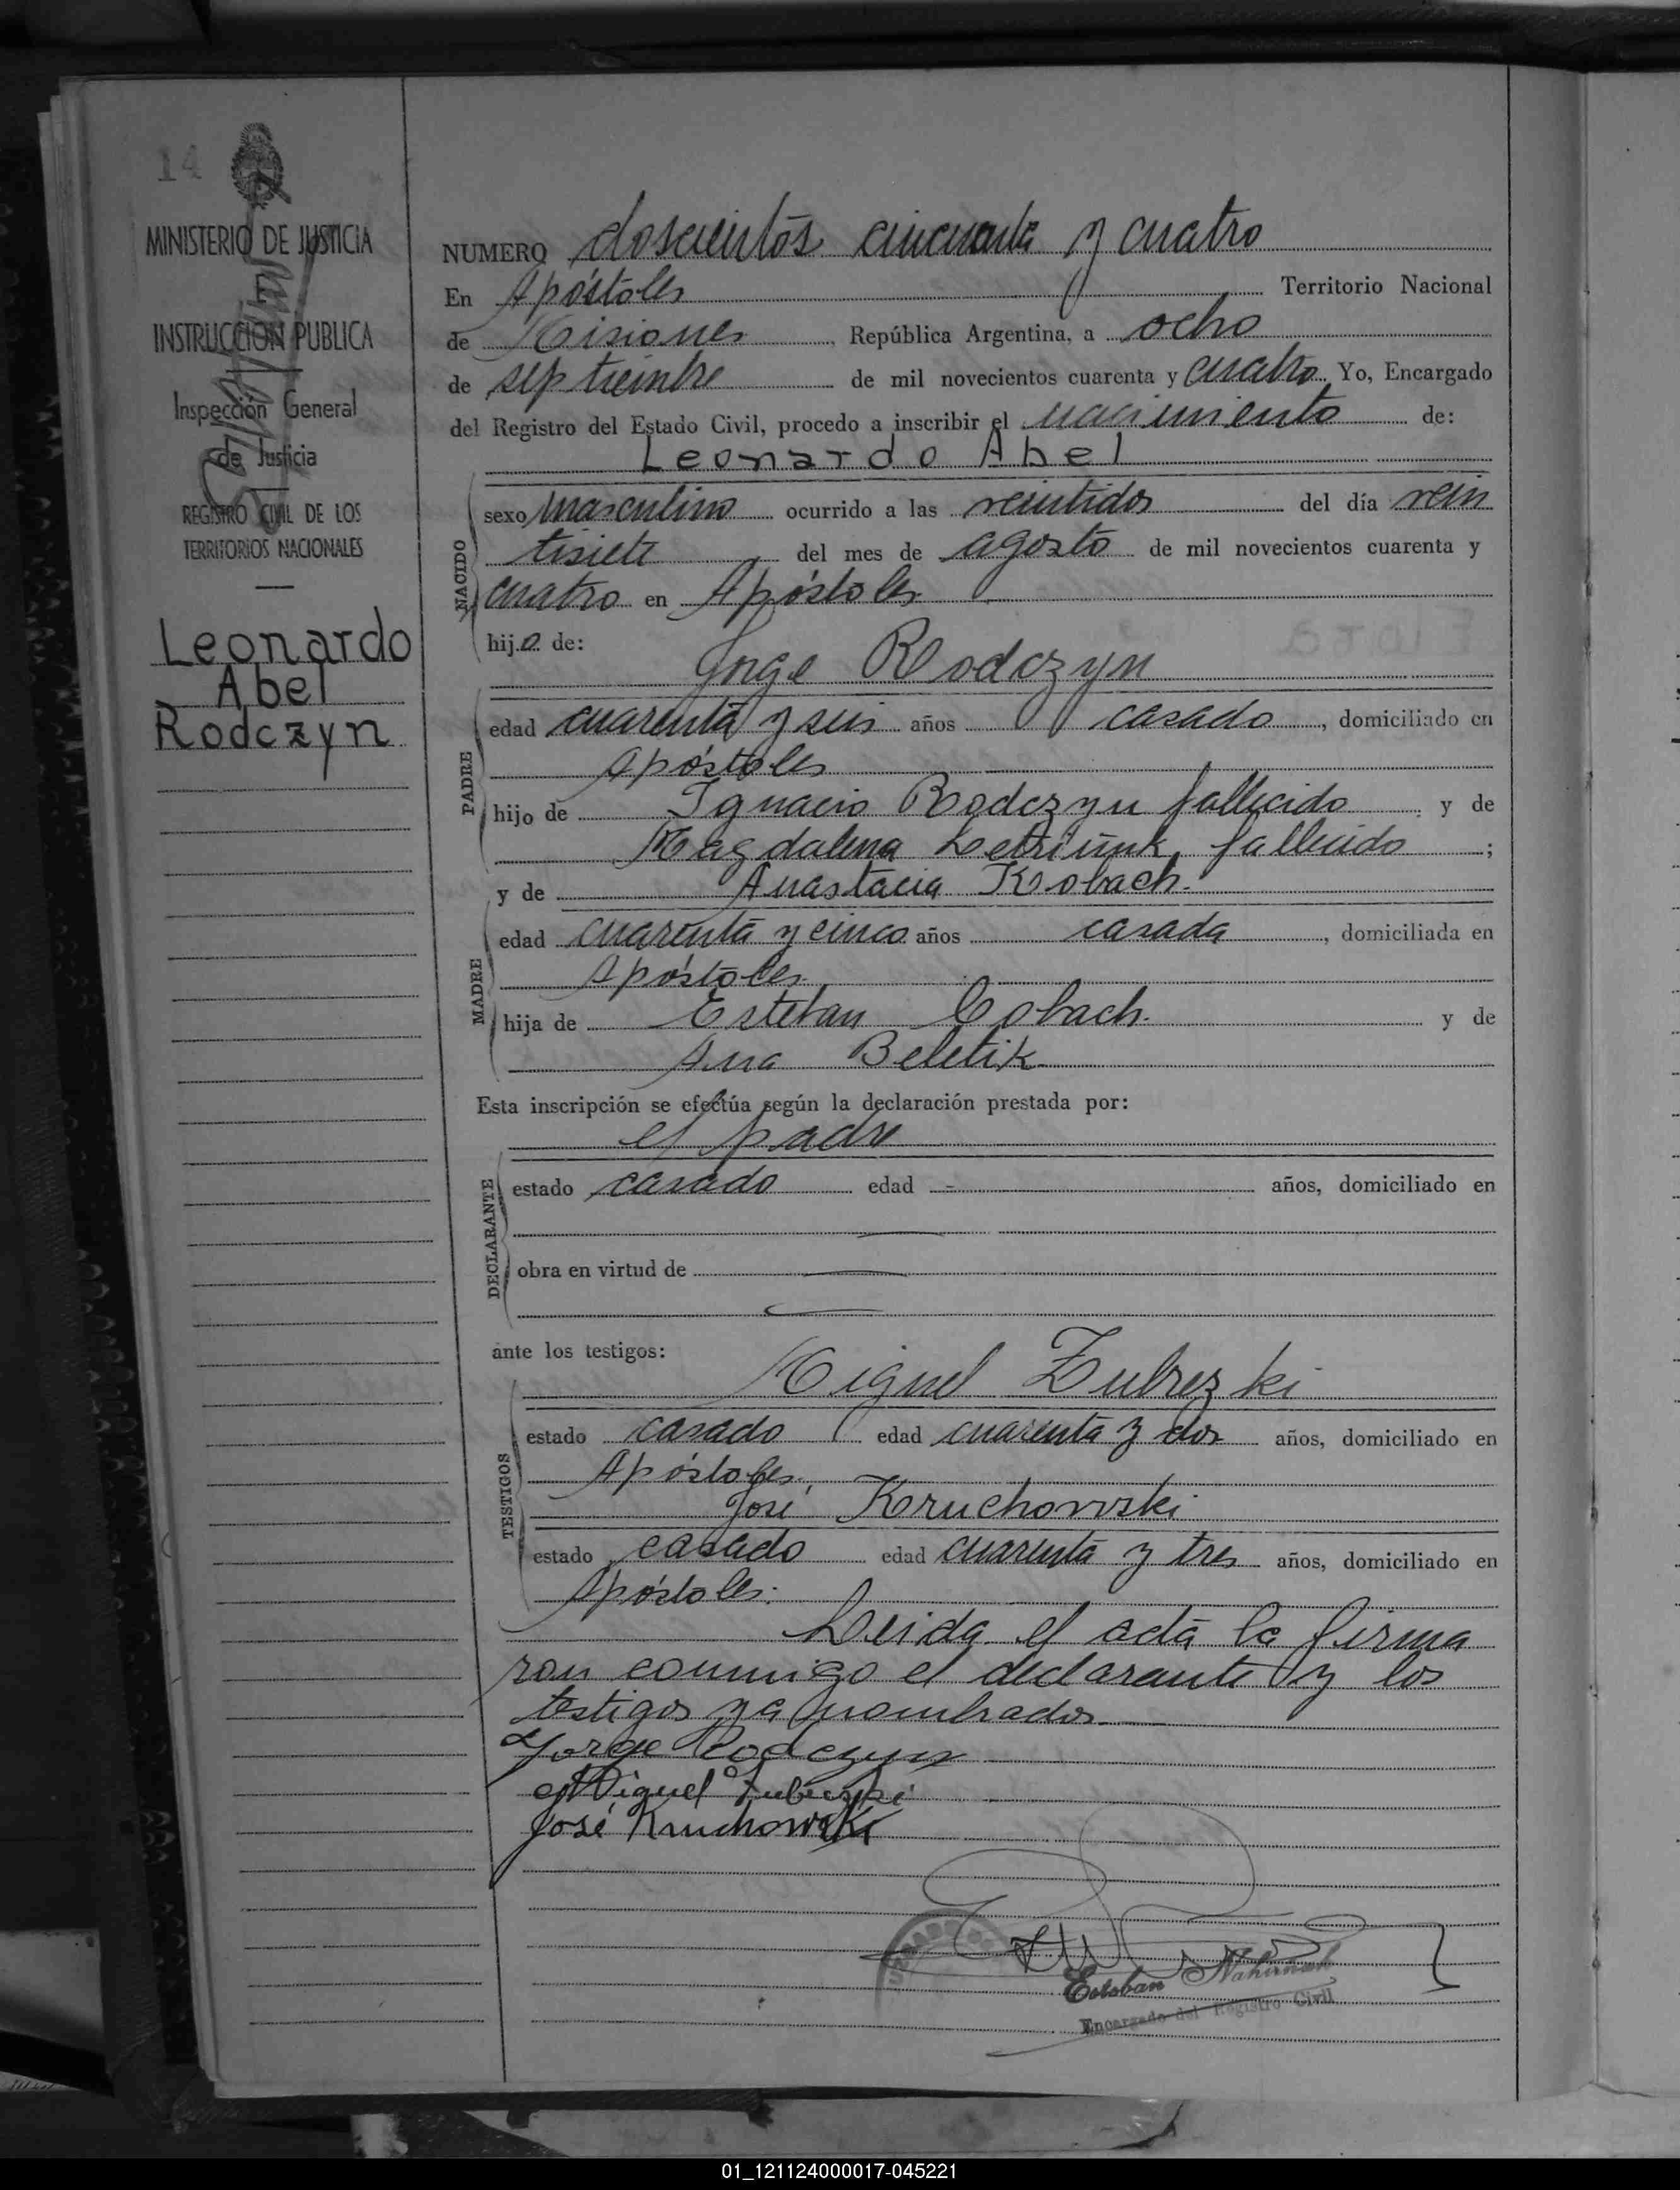 14
MINISTERIO DE JUSTICIA
E
INSTRUCCION PUBLICA
Inspección General
de Justicia
REGISTRO CIVIL DE LOS
TERRITORIOS NACIONALES
Leonardo
Abel
Rodczyn
NUMERO doscientos cincuenta y cuatro
En Apóstoles Territorio Nacional
de Misiones, República Argentina, a ocho
de septiembre de mil novecientos cuarenta y cuatro Yo, Encargado
del Registro del Estado Civil, procedo a inscribir el nacimiento de:
Leonardo Abel
NACIDO
sexo masculino ocurrido a las veintidos del día vein
tisiete del mes de agosto de mil novecientos cuarenta y
cuatro en Apóstoles
hijo de:
Jorge Rodczyn
PADRE
edad cuarenta y seis años casado, domiciliado en
Apóstoles
hijo de Ignacio Rodczyn fallecido y de
Magdalena fallecido ;
y de Anastacia Kobach.
MADRE
edad cuarenta y cinco años casada, domiciliada en
Apóstoles
hija de Esteban Cobach. y de
Ana Beletik
Esta inscripción se efectúa según la declaración prestada por:
el padre
DECLARANTE
estado casado edad - años, domiciliado en
obra en virtud de
ante los testigos:
Miguel Zubrezki
TESTIGOS
estado casado edad cuarenta y dos años, domiciliado en
Apóstoles.
José Kruchowski
estado casado edad cuarenta y tres años, domiciliado en
Apóstoles.
Leida el acta la firma
ron conmigo el declarante y los
testigos ya nombrados
Jorge Rodczyn
Miguel
José Kruchowski
Esteban
Encargado del Registro Civil
01_121124000017-045221